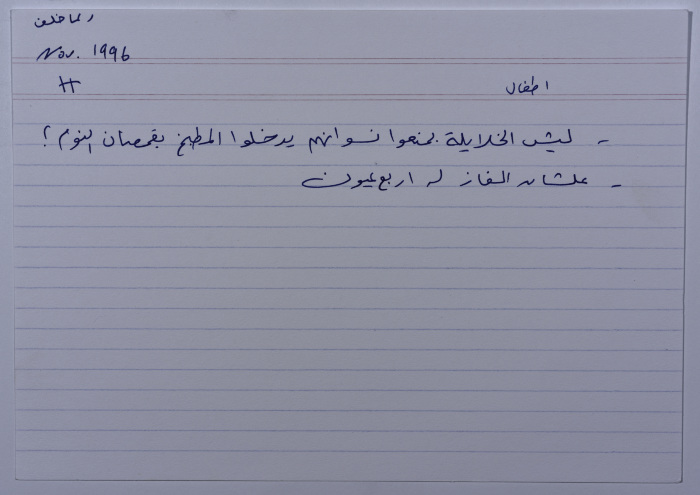 ريما خلف
Nov. 1996
H
اطفال
- ليش الخلايلة بمنعوا نسوانهم يدخلوا المطبخ بقمصان النوم؟
- علشان الغاز له اربع عيون